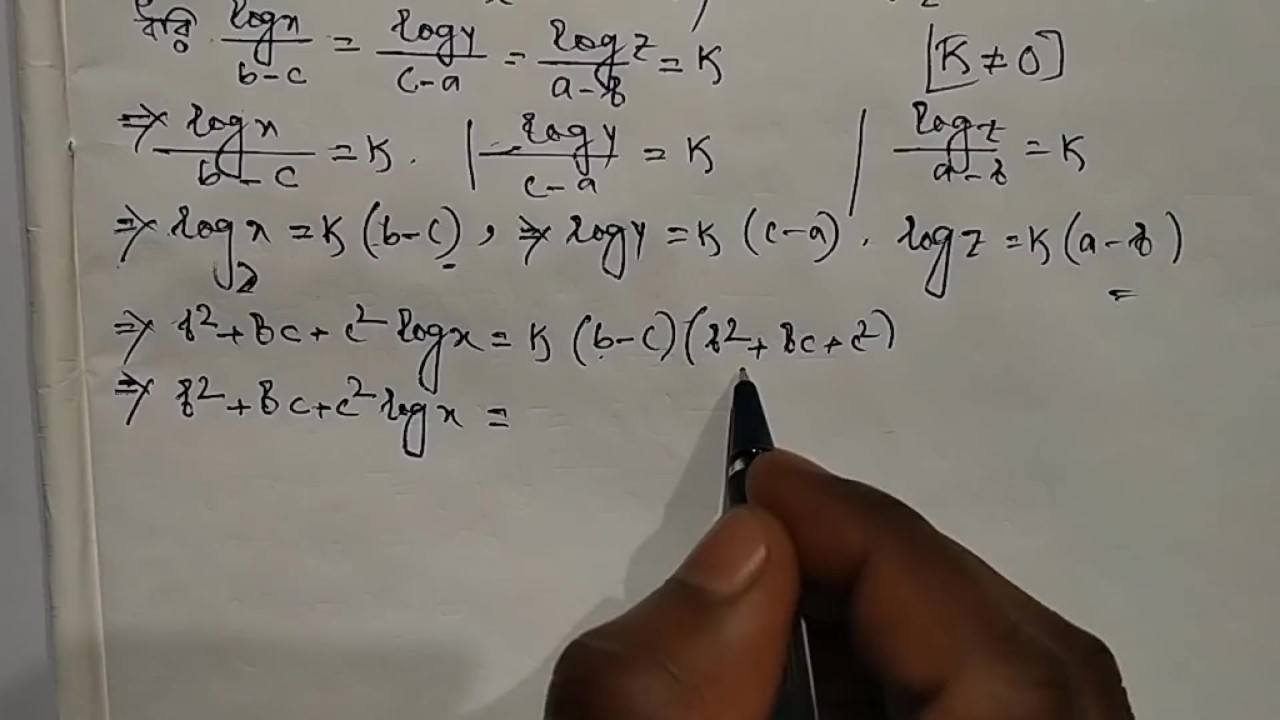 ধরি logx/b-c = logy/c-a = logz/a-b = K [K ≠ 0]
⇒ logx/b-c = K. | logy/c-a = K | logz/a-b = K
⇒ logx = K (b-c), ⇒ logy = K (c-a). logz = K (a-b)
⇒ b²+Bc+c² logx = K (b-c)(b²+Bc+c²)
⇒ b²+Bc+c² logx =